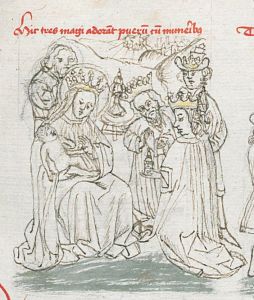 Hic tres magi adorāt puerū cū munerib9